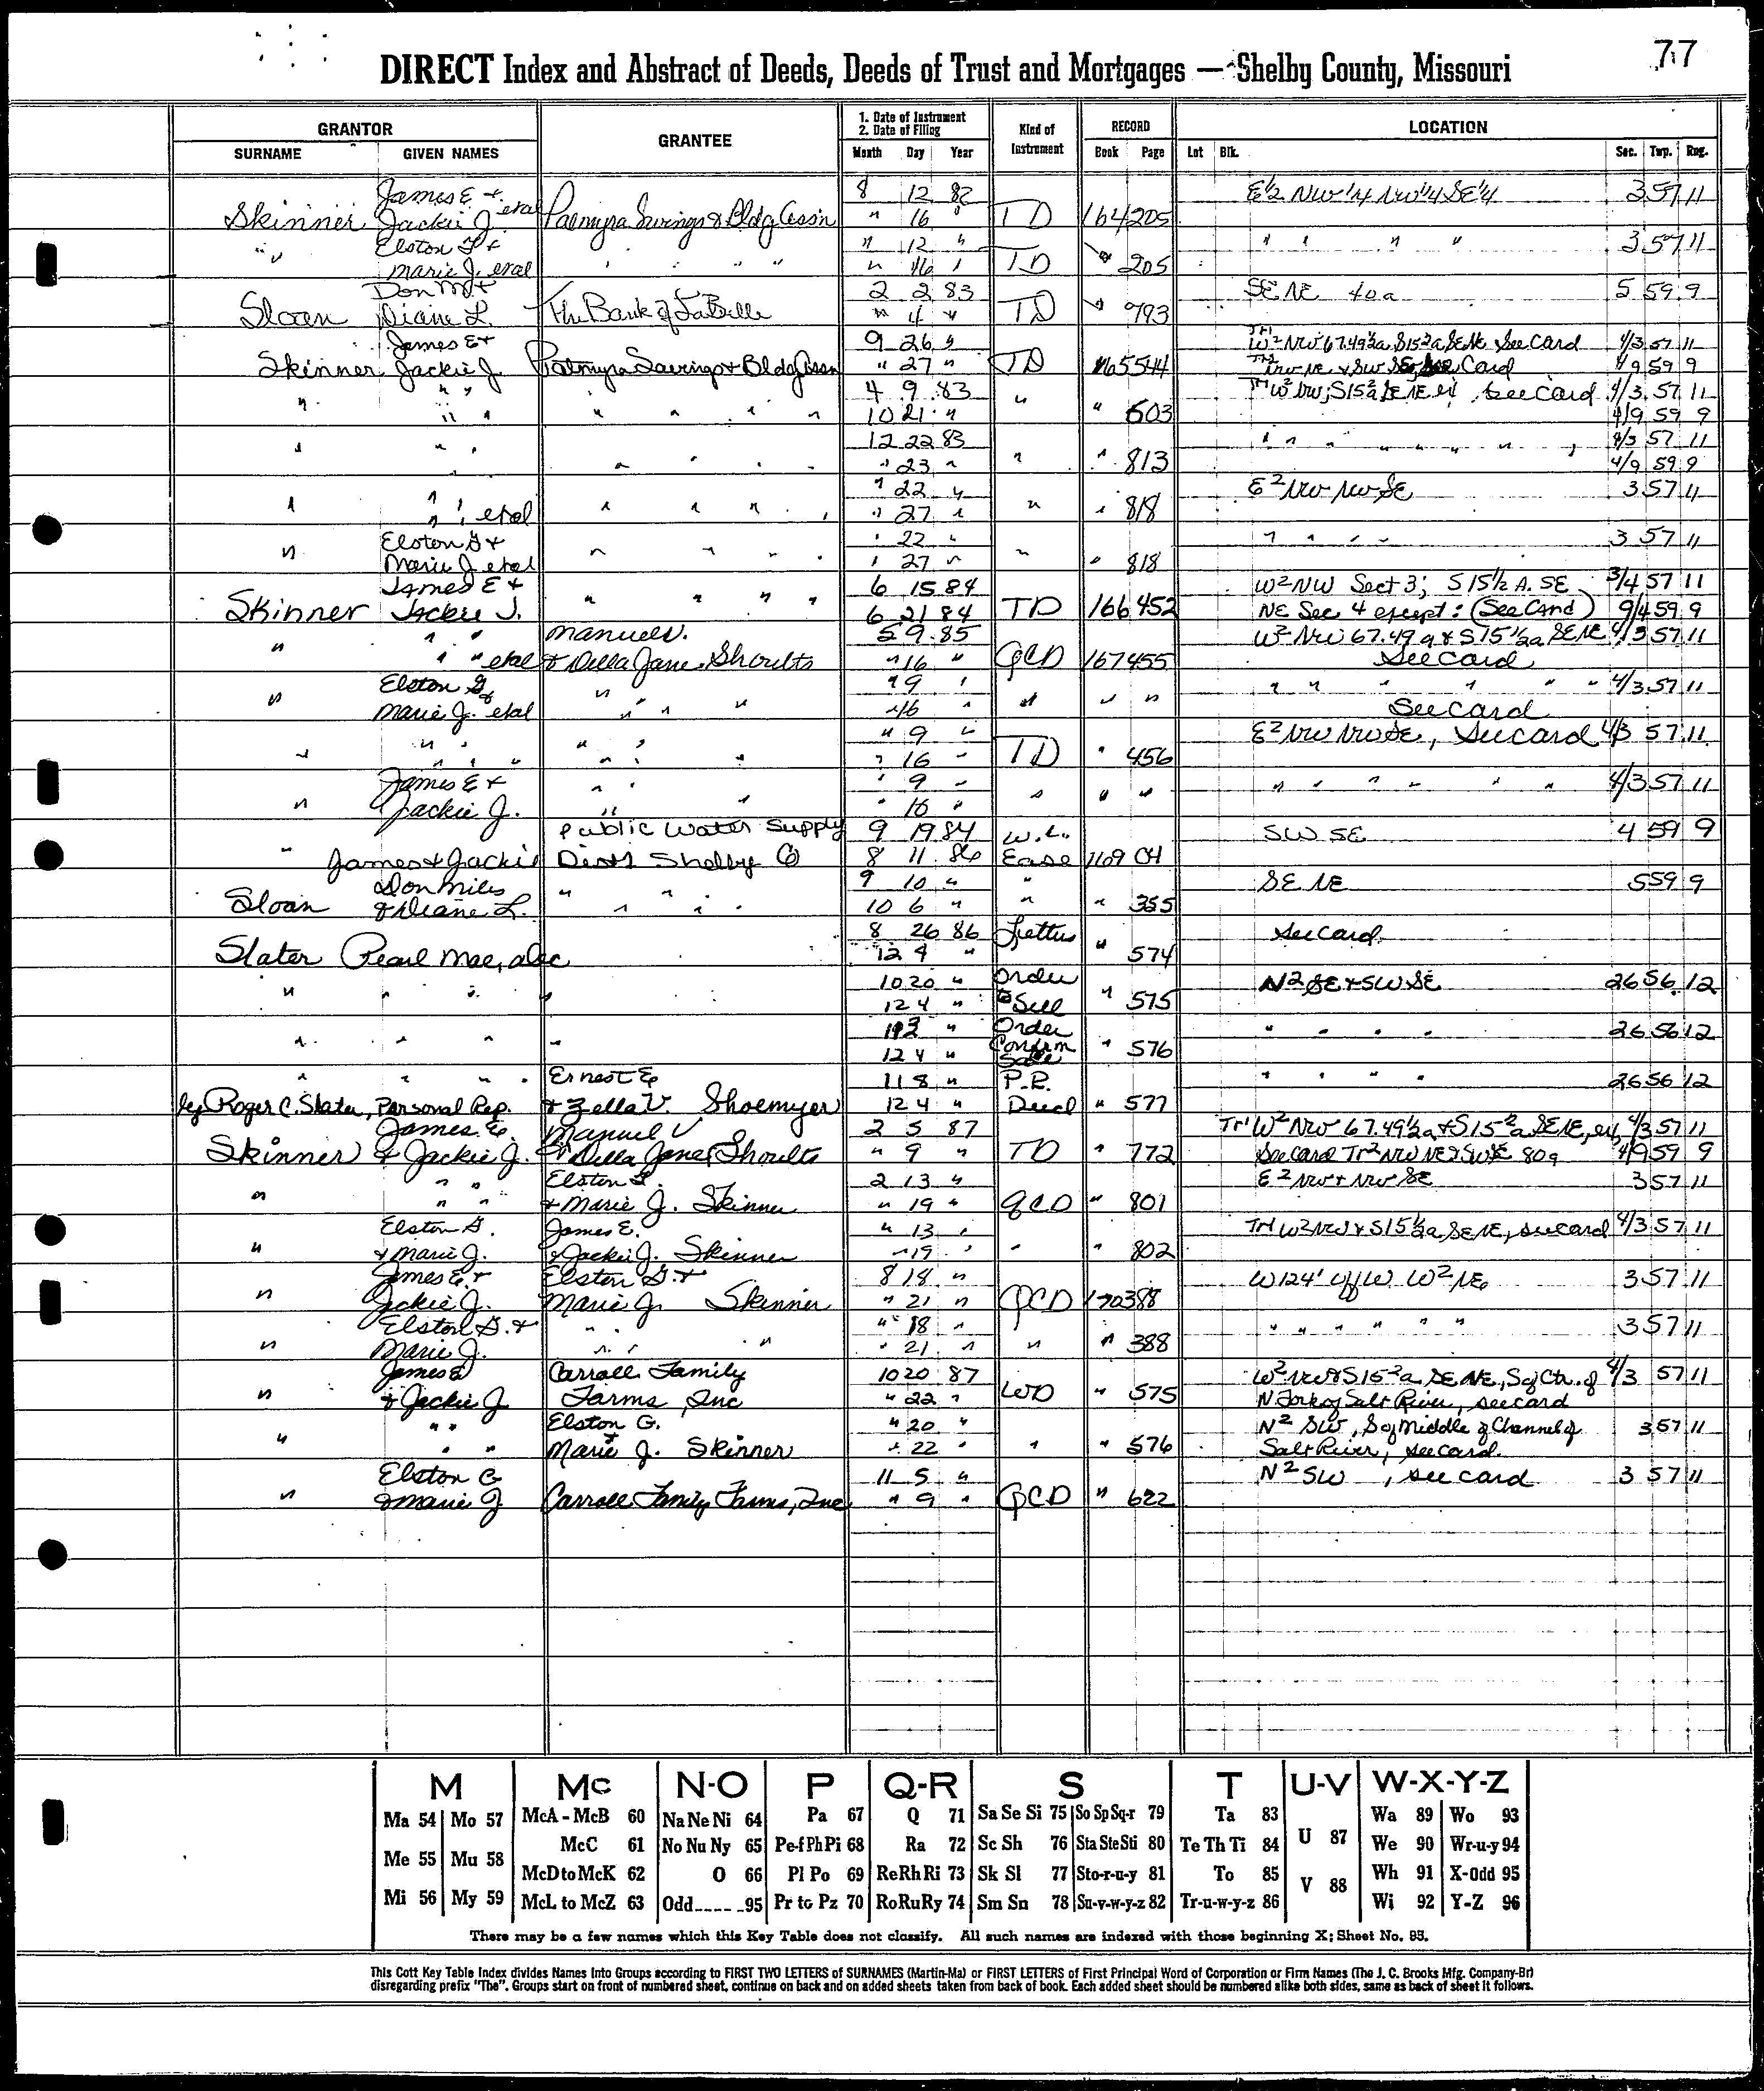 77
DIRECT Index and Abstract of Deeds, Deeds of Trust and Mortgages — Shelby County, Missouri
GRANTOR GRANTEE 1. Date of Instrument 2. Date of Filing Kind of Instrument RECORD LOCATION
SURNAME GIVEN NAMES Month Day Year Book Page Lot Blk. Sec. Twp. Rng.
James E + 8 12 82 E½ NW¼ NW¼ SE¼ 3 57 11
Skinner Jackie J. etal Palmyra Savings & Bldg Assn " 16 " TD 164 205
" Elston G + " 12 " " " " " 3 57 11
Marie J. etal " " " " 16 " TD " 205
Don M + 2 2 83 SE NE 40a 5 59 9
Sloan Diane L. The Bank of LaBelle " 4 " TD " 793
James E + 9 26 " Tr1 W2 NW 67.49½a, S15½a SE NE See Card 4/3 57 11
Skinner Jackie J Palmyra Savings & Bldg Assn " 27 " TD 165 544 Tr2 NW NE & SW SE, See Card 4/9 59 9
" " " 4 9 83 Tr1 W2 NW, S15½a SE NE ex, See Card 4/3 57 11
" " " " " " 10 21 " " " 603 4/9 59 9
" " " 12 22 83 " " " " " " " 4/3 57 11
" " " " " 23 " " " 813 4/9 59 9
" " " 22 " E2 NW NW SE 3 57 11
" " etal " " " " " 27 " " " 818
" Elston G + " 22 " " " " " 3 57 11
Marie J etal " " " " " 27 " " " 818
James E + 6 15 84 W2 NW Sect 3; S 15½ A. SE 3/4 57 11
Skinner Jackie J. " " " " 6 21 84 TD 166 452 NE Sec 4 except: (See Card) 9/4 59 9
" " " Manuel V. 5 9 85 W2 NW 67.49 a & S 15½a SE NE 4/3 57 11
" " etal & Della Jane Shoults " 16 " QCD 167 455 See Card
" Elston G & " " " " 9 " " " " " " " 4/3 57 11
Marie J. etal " " " " 16 " " " " See Card
" " " " " " 9 " E2 NW NW SE, See Card 4/3 57 11
" " " " " " " 16 " TD " 456
James E + " " " 9 " " " " " " " 4/3 57 11
" Jackie J. " " " 16 " " " "
Public Water Supply 9 19 84 W.L. SW SE 4 59 9
" James & Jackie Dist 1 Shelby Co 8 11 86 Ease 169 04
Don Miles " " 9 10 " " SE NE 5 59 9
Sloan & Diane L. " " " 10 6 " " " 355
8 26 86 Letters See Card
Slater Pearl Mae, dec 12 4 " " 574
" " " " 10 20 " Order N2 SE & SW SE 26 56 12
12 4 " to Sell " 575
" " " " 11 3 " Order " " " " 26 56 12
12 4 " Confirm Sale " 576
" " " " Ernest E 11 8 " P.R. " " " " 26 56 12
by Roger C. Slater, Personal Rep. & Zella V. Shoemyer 12 4 " Deed " 577
James E. Manuel V 2 5 87 Tr1 W2 NW 67.49½a & S 15½a SE NE, ex, 4/3 57 11
Skinner & Jackie J. & Della Jane Shoults " 9 " TD " 772 See Card Tr2 NW NE & SW SE 80a 4/9 59 9
" " " Elston G. 2 13 " E2 NW & NW SE 3 57 11
" " & Marie J. Skinner " 19 " QCD " 801
Elston G. James E. " 13 " Tr1 W2 NW & S15½a SE NE, see card 4/3 57 11
" & Marie J. & Jackie J. Skinner " 19 " " " 802
James E. + Elston G. + 8 18 " W 124' off W W2 NE 3 57 11
" Jackie J. Marie J. Skinner " 21 " QCD 170 388
Elston G. + " " " 18 " " " " " " " 3 57 11
" Marie J. " " " " 21 " " " 388
James E Carroll Family 10 20 87 W2 NW & S 15½a SE NE, S of Ctr. of 4/3 57 11
" & Jackie J Farms, Inc " 22 " WD " 575 N Fork of Salt River, see card
" " Elston G. " 20 " N2 SW, S of Middle of Channel of 3 57 11
" " " & Marie J. Skinner " 22 " " " 576 Salt River, see card.
Elston G 11 5 " N2 SW, see card 3 57 11
" & Marie J Carroll Family Farms, Inc " 9 " QCD " 622
M Mc N-O P Q-R S T U-V W-X-Y-Z
Ma 54 Mo 57 McA - McB 60 Na Ne Ni 64 Pa 67 Q 71 Sa Se Si 75 So Sp Sq-r 79 Ta 83 U 87 Wa 89 Wo 93
Me 55 Mu 58 McC 61 No Nu Ny 65 Pe-f Ph Pi 68 Ra 72 Sc Sh 76 Sta Ste Sti 80 Te Th Ti 84 We 90 Wr-u-y 94
McD to McK 62 O 66 Pl Po 69 Re Rh Ri 73 Sk Sl 77 Sto-r-u-y 81 To 85 V 88 Wh 91 X-Odd 95
Mi 56 My 59 McL to McZ 63 Odd 95 Pr to Pz 70 Ro Ru Ry 74 Sm Sn 78 Su-v-w-y-z 82 Tr-u-w-y-z 86 Wi 92 Y-Z 96
There may be a few names which this Key Table does not classify. All such names are indexed with those beginning X; Sheet No. 95.
This Cott Key Table Index divides Names Into Groups according to FIRST TWO LETTERS of SURNAMES (Martin-Ma) or FIRST LETTERS of First Principal Word of Corporation or Firm Names (The J. C. Brooks Mfg. Company-Br)
disregarding prefix "The". Groups start on front of numbered sheet, continue on back and on added sheets taken from back of book. Each added sheet should be numbered alike both sides, same as back of sheet it follows.